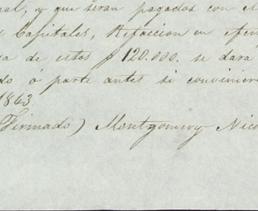 al, y que serán pagados con el
Capitales, Refaccion en efec
de estos $120.000. se dara
do ó parte antes si conviniere
1863
(Firmado) Montgomery Nico